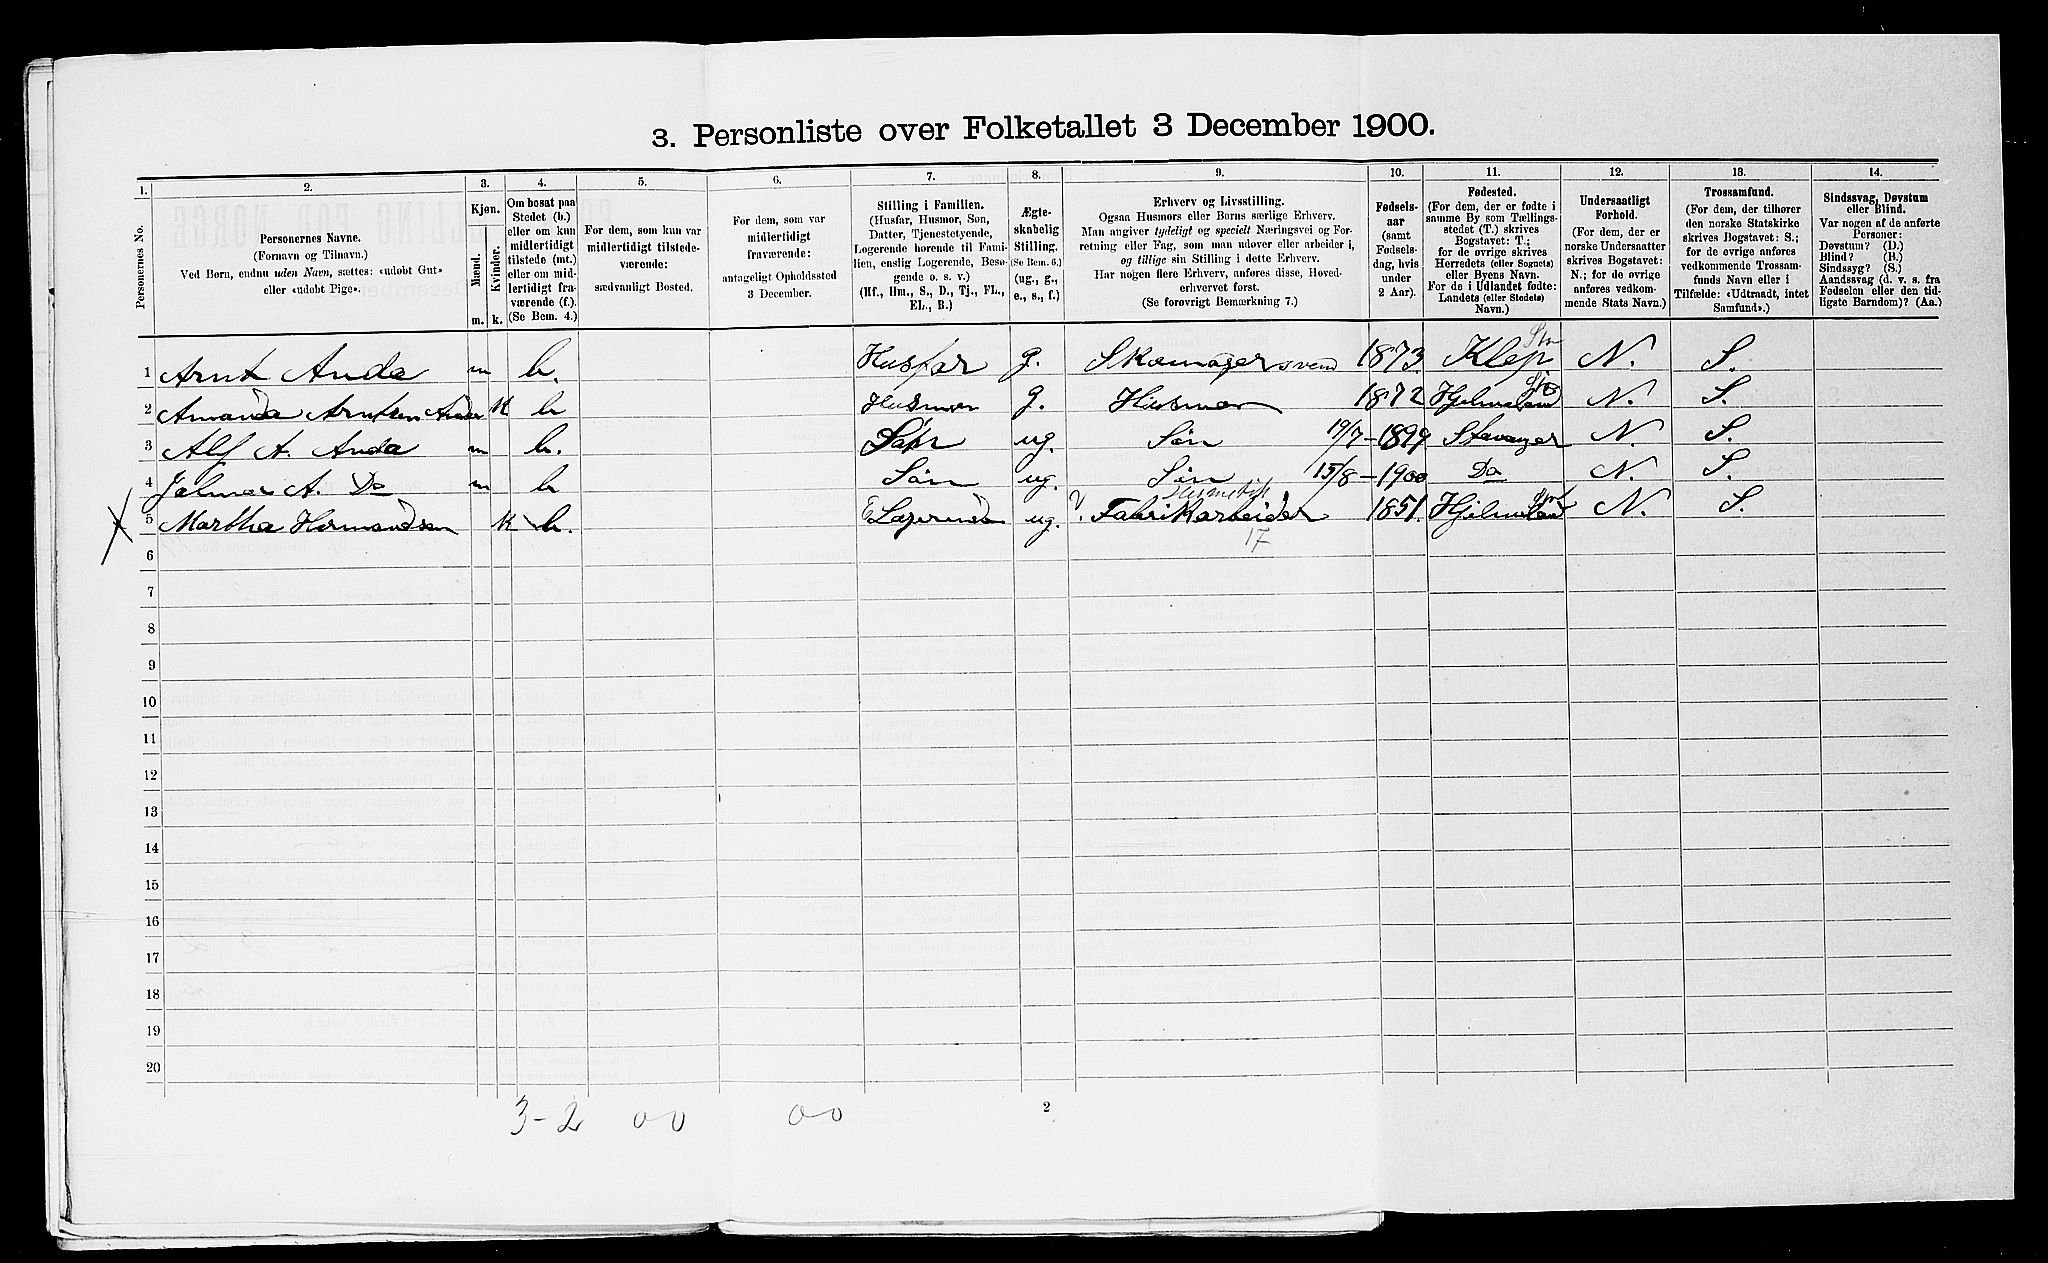 3. Personliste over Folketallet 3 December 1900.
1. 2. 3. 4. 5. 6. 7. 8. 9. 10. 11. 12. 13. 14.
Personernes No.
Personernes Navne.
(Fornavn og Tilnavn.)
Ved Børn, endnu uden Navn, sættes: «udøbt Gut»
eller «udøbt Pige».
Kjøn.
Mænd.
Kvinder.
m. k.
Om bosat paa
Stedet (b.)
eller om kun
midlertidigt
tilstede (mt.)
eller om mid-
lertidigt fra-
værende (f.).
(Se Bem. 4.)
For dem, som kun var
midlertidigt tilstede-
værende:
sædvanligt Bosted.
For dem, som var
midlertidigt
fraværende:
antageligt Opholdssted
3 December.
Stilling i Familien.
(Husfar, Husmor, Søn,
Datter, Tjenestetyende,
Logerende hørende til Fami-
lien, enslig Logerende, Besø-
gende o. s. v.)
(Hf., Hm., S., D., Tj., FL.,
EL., B.)
Ægte-
skabelig
Stilling.
(Se Bem. 6.)
(ug., g.,
e., s., f.)
Erhverv og Livsstilling.
Ogsaa Husmors eller Børns særlige Erhverv.
Man angiver tydeligt og specielt Næringsvei og For-
retning eller Fag, som man udøver eller arbeider i,
og tillige sin Stilling i dette Erhverv.
Har nogen flere Erhverv, anføres disse, Hoved-
erhvervet først.
(Se forøvrigt Bemærkning 7.)
Fødsels-
aar
(samt
Fødsels-
dag, hvis
under
2 Aar).
Fødested.
(For dem, der er fødte i
samme By som Tællings-
stedet (T.) skrives
Bogstavet: T.;
for de øvrige skrives
Herredets (eller Sognets)
eller Byens Navn.
For de i Udlandet fødte:
Landets (eller Stedets)
Navn.)
Undersaatligt
Forhold.
(For dem, der er
norske Undersaatter
skrives Bogstavet:
N.; for de øvrige
anføres vedkom-
mende Stats Navn.)
Trossamfund.
(For dem, der tilhører
den norske Statskirke
skrives Bogstavet: S.;
for de øvrige anføres
vedkommende Trossam-
funds Navn eller i
Tilfælde: «Udtraadt, intet
Samfund».)
Sindssvag, Døvstum
eller Blind.
Var nogen af de anførte
Personer:
Døvstum? (D.)
Blind? (B.)
Sindssyg? (S.)
Aandssvag (d. v. s. fra
Fødselen eller den tid-
ligste Barndom)? (Aa.)
1 Arnt Anda m b. Husfar g. Skomagersvend 1873. Klep N. S.
2 Amanda Arntsen Anda K b Husmor g. Husmor 1872 Hjelmeland N. S.
3 Alf A. Anda m b. Søn ug. Søn 19/7-1899 Stavanger N. S.
4 Jalmar A. Do m b Søn ug. Søn 15/8-1900 Do N. S.
5 Martha Hermandsen K b. Logerende ug. Fabrikarbeider 1851. Hjelmeland N. S.
17
6
7
8
9
10
11
12
13
14
15
16
17
18
19
20
3-2 00 00
2